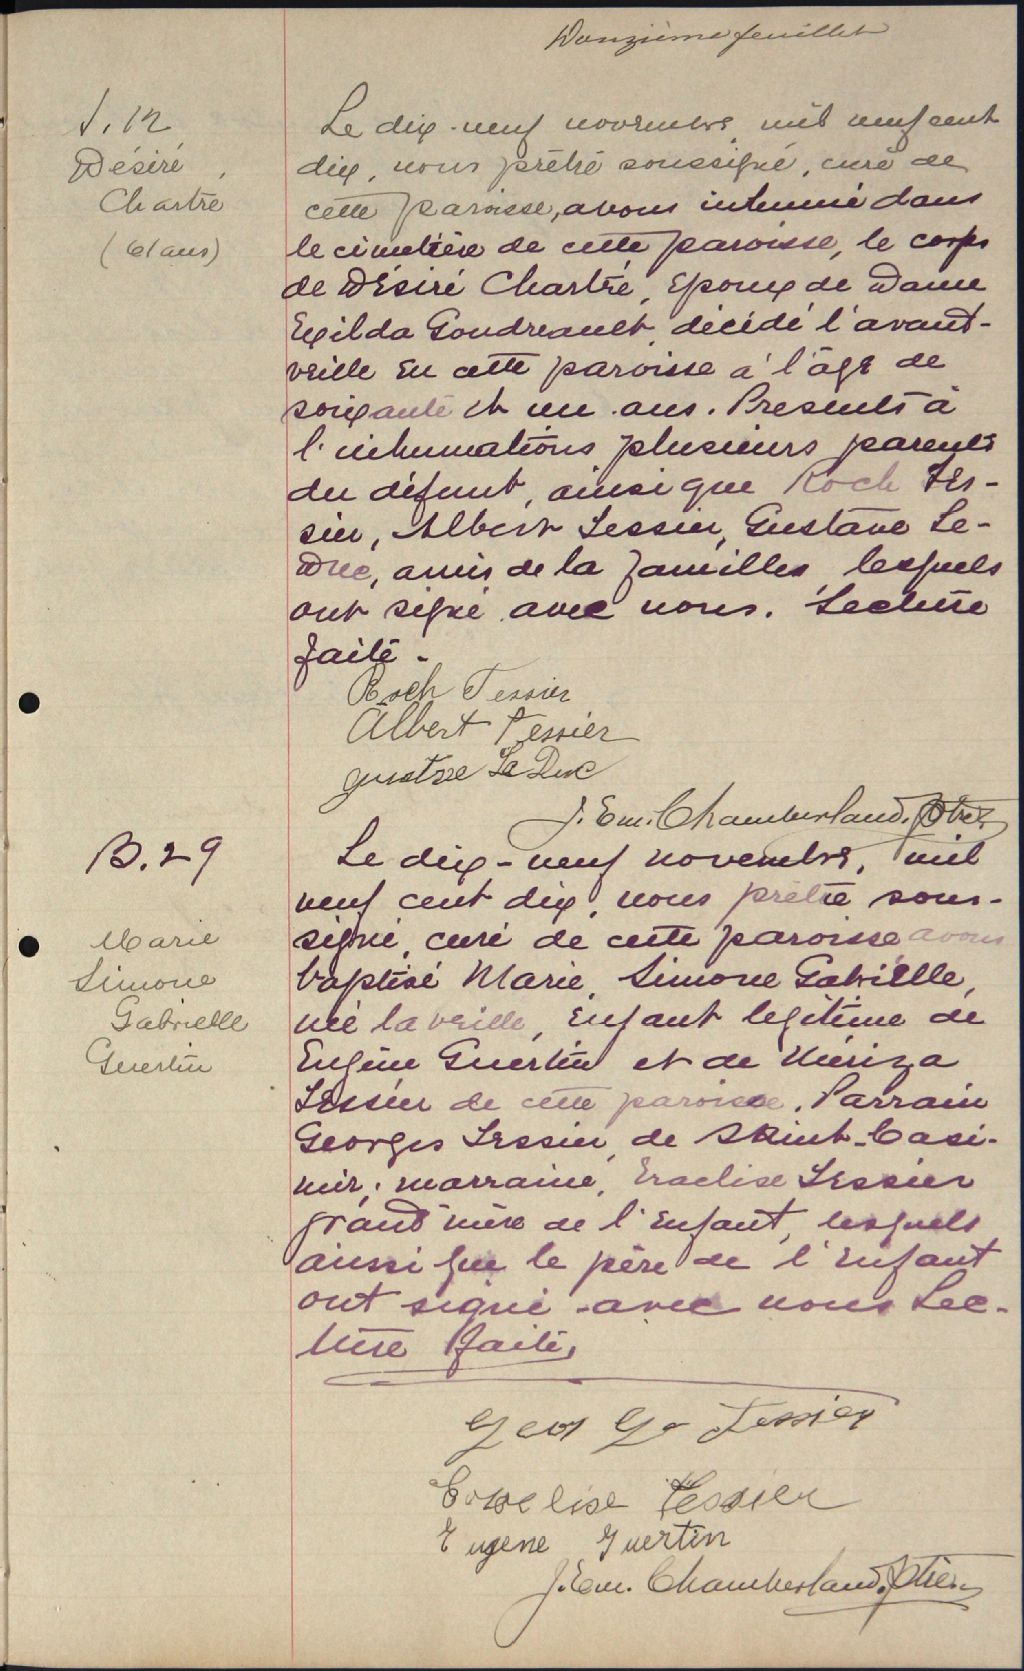 Douzième feuillet
S. 12
Désiré
Chartré
(61 ans)
Le dix-neuf novembre, mil neuf cent
dix, nous prêtre soussigné, curé de
cette paroisse, avons inhumé dans
le cimetière de cette paroisse, le corps
de Désiré Chartré, Epoux de Dame
Exilda Goudreault, décédé l'avant-
veille en cette paroisse à l'âge de
soixante et un ans. Presents à
l'inhumations plusieurs parents
du défunt, ainsi que Roch Tes-
sier, Albert Tessier, Gustave Le-
Duc, amis de la familles, lesquels
ont signé avec nous. Lecture
faite.
Roch Tessier
Albert Tessier
gustave Le Duc
J. Em. Chamberland, Ptre
B. 29
Marie
Simone
Gabrielle
Guertin
Le dix-neuf novembre, mil
neuf cent dix, nous prêtre sous-
signé, curé de cette paroisse avons
baptisé Marie, Simone Gabrielle,
née la veille, Enfant légitime de
Eugène Guertin et de
Tessier de cette paroisse. Parrain
Georges Tessier, de Saint-Casi-
mir; marraine, Eraelise Tessier
grand'mère de l'Enfant, lesquels
ainsi que le père de l'enfant
ont signé avec nous Lec-
ture faite,
Geo Tessier
Tessier
Eugene Guertin
J. Em. Chamberland, Ptre